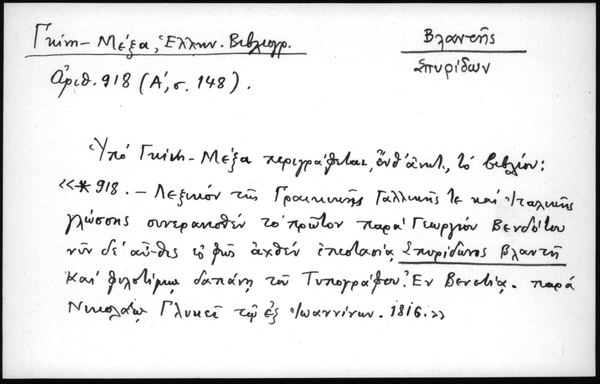 Γκίνη – Μέξα, Ἑλλην. Βιβλιογρ.
Βλαντῆς
Σπυρίδων
Ἀριθ. 918 (Α΄, σ. 148).
Ὑπό Γκίνη – Μέξα περιγράφεται, ἔνθ' ἀνωτ., τό βιβλίον:
«*918. – Λεξικόν τῆς Γραικικῆς Γαλλικῆς τε καί Ἰταλικῆς
γλώσσης συνερανισθέν τό πρῶτον παρά Γεωργίου Βενδότου
νῦν δέ αὖθις εἰς φῶς ἀχθέν ἐπιστασίᾳ Σπυρίδωνος Βλαντῆ
καί φιλοτίμῳ δαπάνῃ τοῦ Τυπογράφου. Ἐν Βενετίᾳ. παρά
Νικολάῳ Γλυκεῖ τῷ ἐξ Ἰωαννίνων. 1816.»